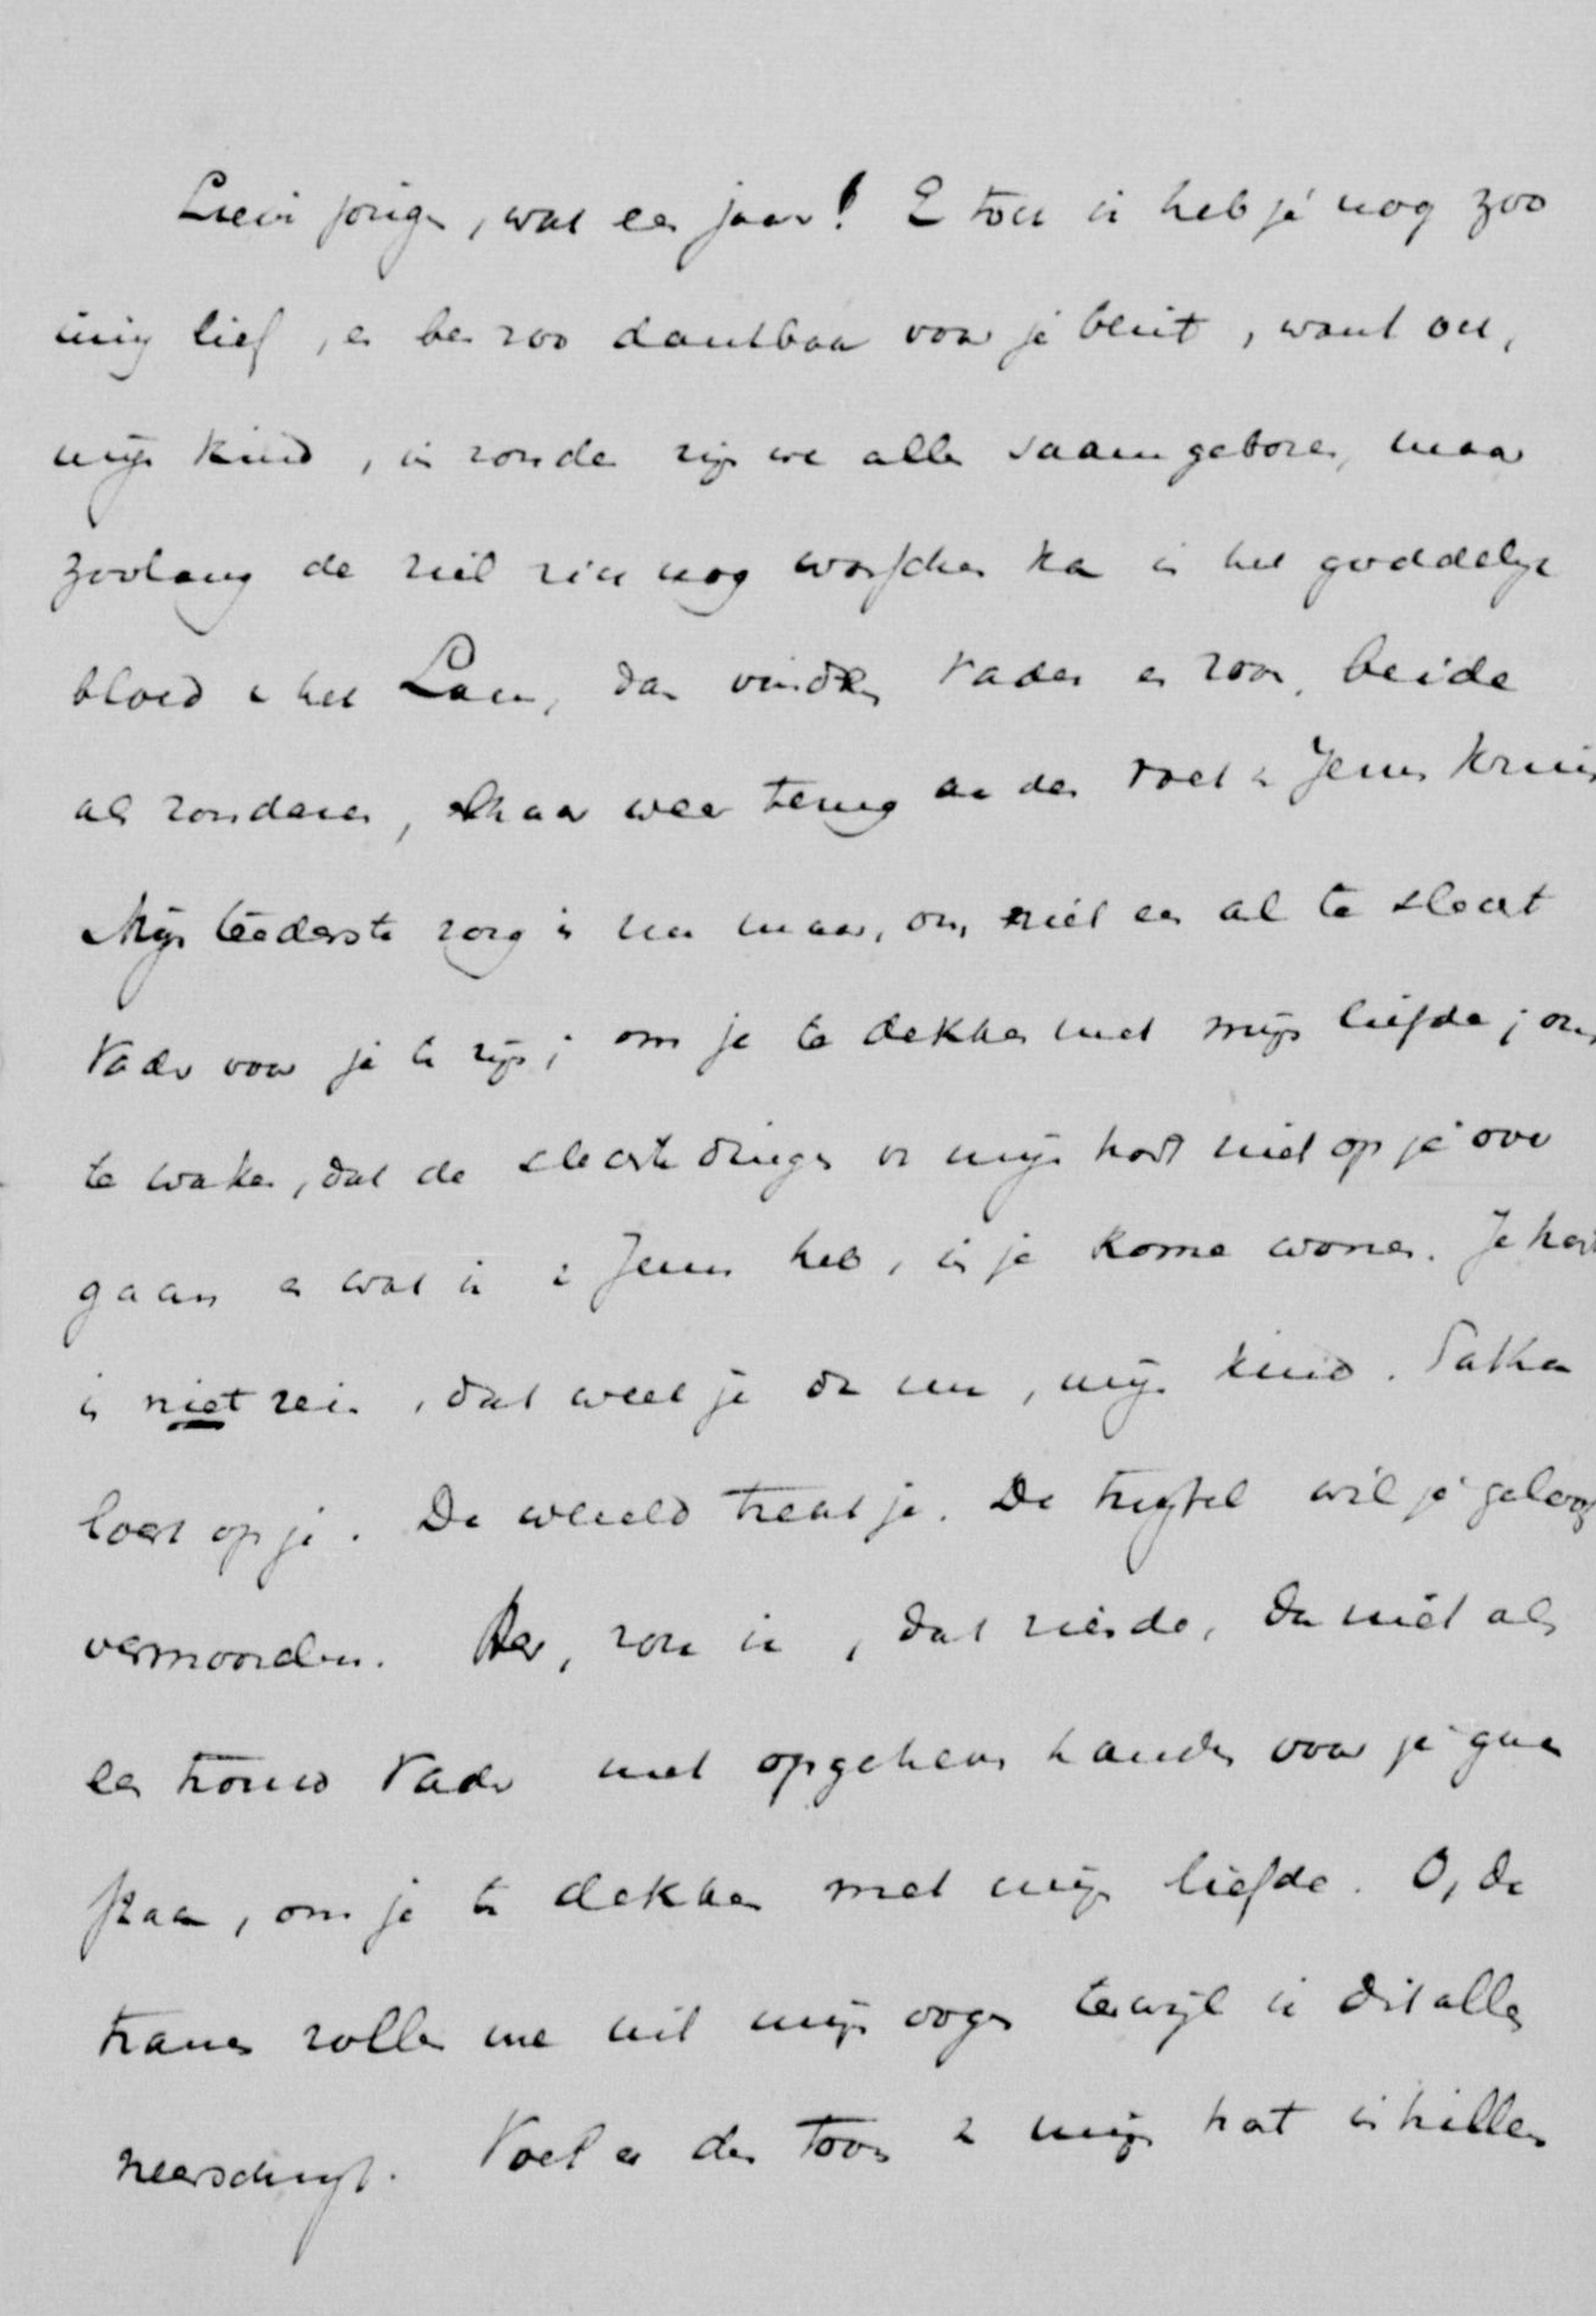 Lieve jongen, wat een jaar! En toch ik heb je nog zoo
innig lief, en ben zoo dankbaar voor je bent, want och,
mijn kind, in zonde zijn we allen saam geboren, maar
zoolang de ziel zich nog wasschen kan in het goddelijk
bloed van het Lam, dan vinden Vader en zoon, beide
als zondaren, elkaar weer terug aan den voet van Jezus Kruis
Mijn teederste zorg is nu maar, om niet een al te slecht
Vader voor je te zijn; om je te dekken met mijn liefde; om
te waken, dat de slechte dingen in mijn hart niet op je over
gaan en wat ik in Jezus heb, in je kome wonen. Je hart
is niet rein, dat weet je ook nu, mijn kind. Satan
loert op je. De wereld trekt je. De twijfel wil je geloof
vermoorden. En, zou ik, dat ziende, dan niet als
een trouw Vader met opgeheven handen voor je gaan
staan, om je te dekken met mijn liefde. O, de
tranen rollen me uit mijn oogen terwijl ik dit alles
neerschrijf. Voel er den toon van mijn hart in trillen